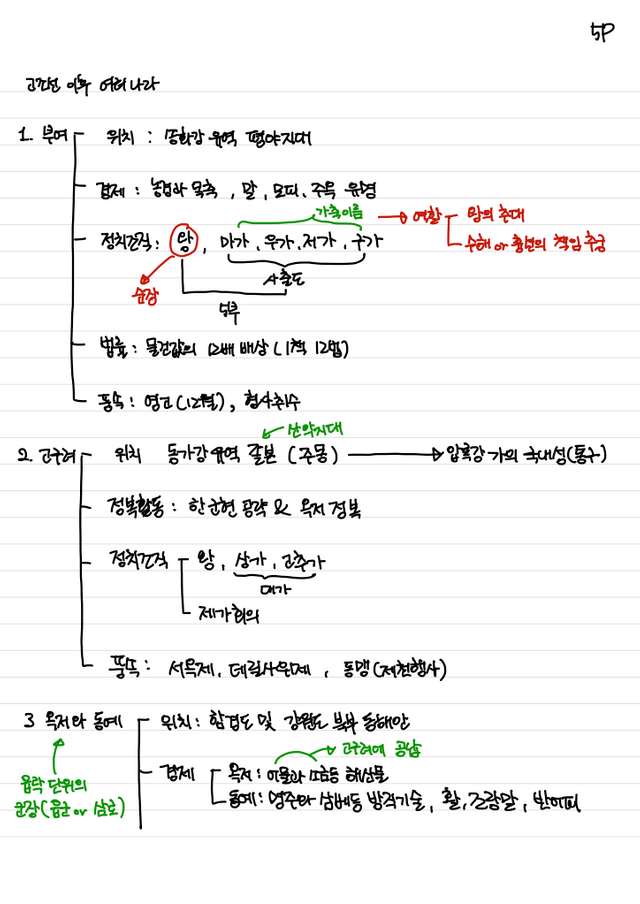 5P
고조선 이후 여러나라
1. 부여
위치 : 송화강 유역 평야지대
경제 : 농경과 목축 , 말 , 모피 , 주옥 유명
가축이름
정치조직 : 왕 , 마가 , 우가 , 저가 , 구가
→ 역할
왕의 추대
수해 or 흉년의 책임 추궁
군장
사출도
5부
법률 : 물건값의 12배 배상 (1책 12법)
풍속 : 영고 (12월) , 형사취수
산악지대
2. 고구려
위치 동가강 유역 졸본 (주몽) → 압록강 가의 국내성(통구)
정복활동 : 한군현 공략 & 옥저 정복
정치조직
왕 , 상가 , 고추가
대가
제가회의
풍속 : 서옥제 , 데릴사위제 , 동맹 (제천행사)
3 옥저와 동예
위치 : 함경도 및 강원도 북부 동해안
고구려에 공납
경제
옥저 : 어물과 소금등 해산물
동예 : 명주와 삼베등 방직기술 , 활 , 조랑말 , 반어피
읍락 단위의
군장 (읍군 or 삼로)